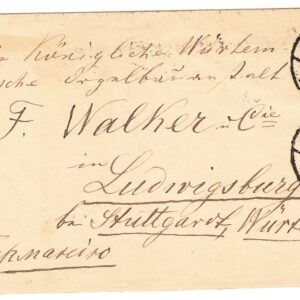 Königliche Würtem
sche Orgelbauanstalt
F. Walker u Cie
in
Ludwigsburg
bei Stuttgardt, Würt